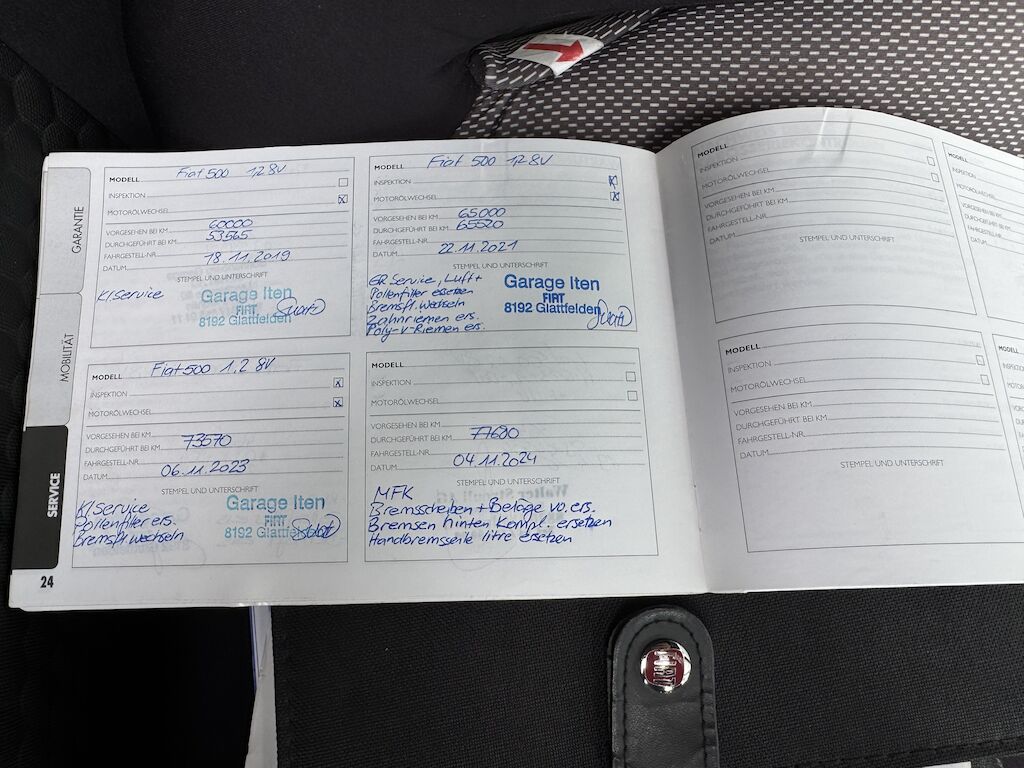 GARANTIE
MOBILITÄT
SERVICE
24
MODELL Fiat 500 1.2 8V
INSPEKTION
MOTORÖLWECHSEL x
VORGESEHEN BEI KM 60000
DURCHGEFÜHRT BEI KM 53565
FAHRGESTELL-NR.
DATUM 18.11.2019
STEMPEL UND UNTERSCHRIFT
Kl Service
Garage Iten
FIAT
8192 Glattfelden
MODELL Fiat 500 1.2 8V
INSPEKTION x
MOTORÖLWECHSEL x
VORGESEHEN BEI KM 65000
DURCHGEFÜHRT BEI KM 65520
FAHRGESTELL-NR.
DATUM 22.11.2021
STEMPEL UND UNTERSCHRIFT
GR Service, Luft+
Pollenfilter ersetzen
Bremsfl. Wechseln
Zahnriemen ers.
Poly-V-Riemen ers.
Garage Iten
FIAT
8192 Glattfelden
MODELL Fiat 500 1.2 8V
INSPEKTION x
MOTORÖLWECHSEL x
VORGESEHEN BEI KM
DURCHGEFÜHRT BEI KM 73570
FAHRGESTELL-NR.
DATUM 06.11.2023
STEMPEL UND UNTERSCHRIFT
Kl Service
Pollenfilter ers.
Bremsfl wechseln
Garage Iten
FIAT
8192 Glattfelden
MODELL
INSPEKTION
MOTORÖLWECHSEL
VORGESEHEN BEI KM
DURCHGEFÜHRT BEI KM 77680
FAHRGESTELL-NR.
DATUM 04.11.2024
STEMPEL UND UNTERSCHRIFT
MFK
Bremsscheiben + Beläge vo. ers.
Bremsen hinten Kompl. ersetzen
Handbremsseile li+re ersetzen
MODELL
INSPEKTION
MOTORÖLWECHSEL
VORGESEHEN BEI KM
DURCHGEFÜHRT BEI KM
FAHRGESTELL-NR.
DATUM
STEMPEL UND UNTERSCHRIFT
MODELL
INSPEKTION
MOTORÖLWECHSEL
VORGESEHEN BEI KM
DURCHGEFÜHRT BEI KM
FAHRGESTELL-NR.
DATUM
STEMPEL UND UNTERSCHRIFT